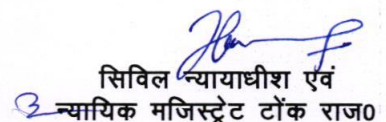 सिविल न्यायाधीश एवं
न्यायिक मजिस्ट्रेट टोंक राज0